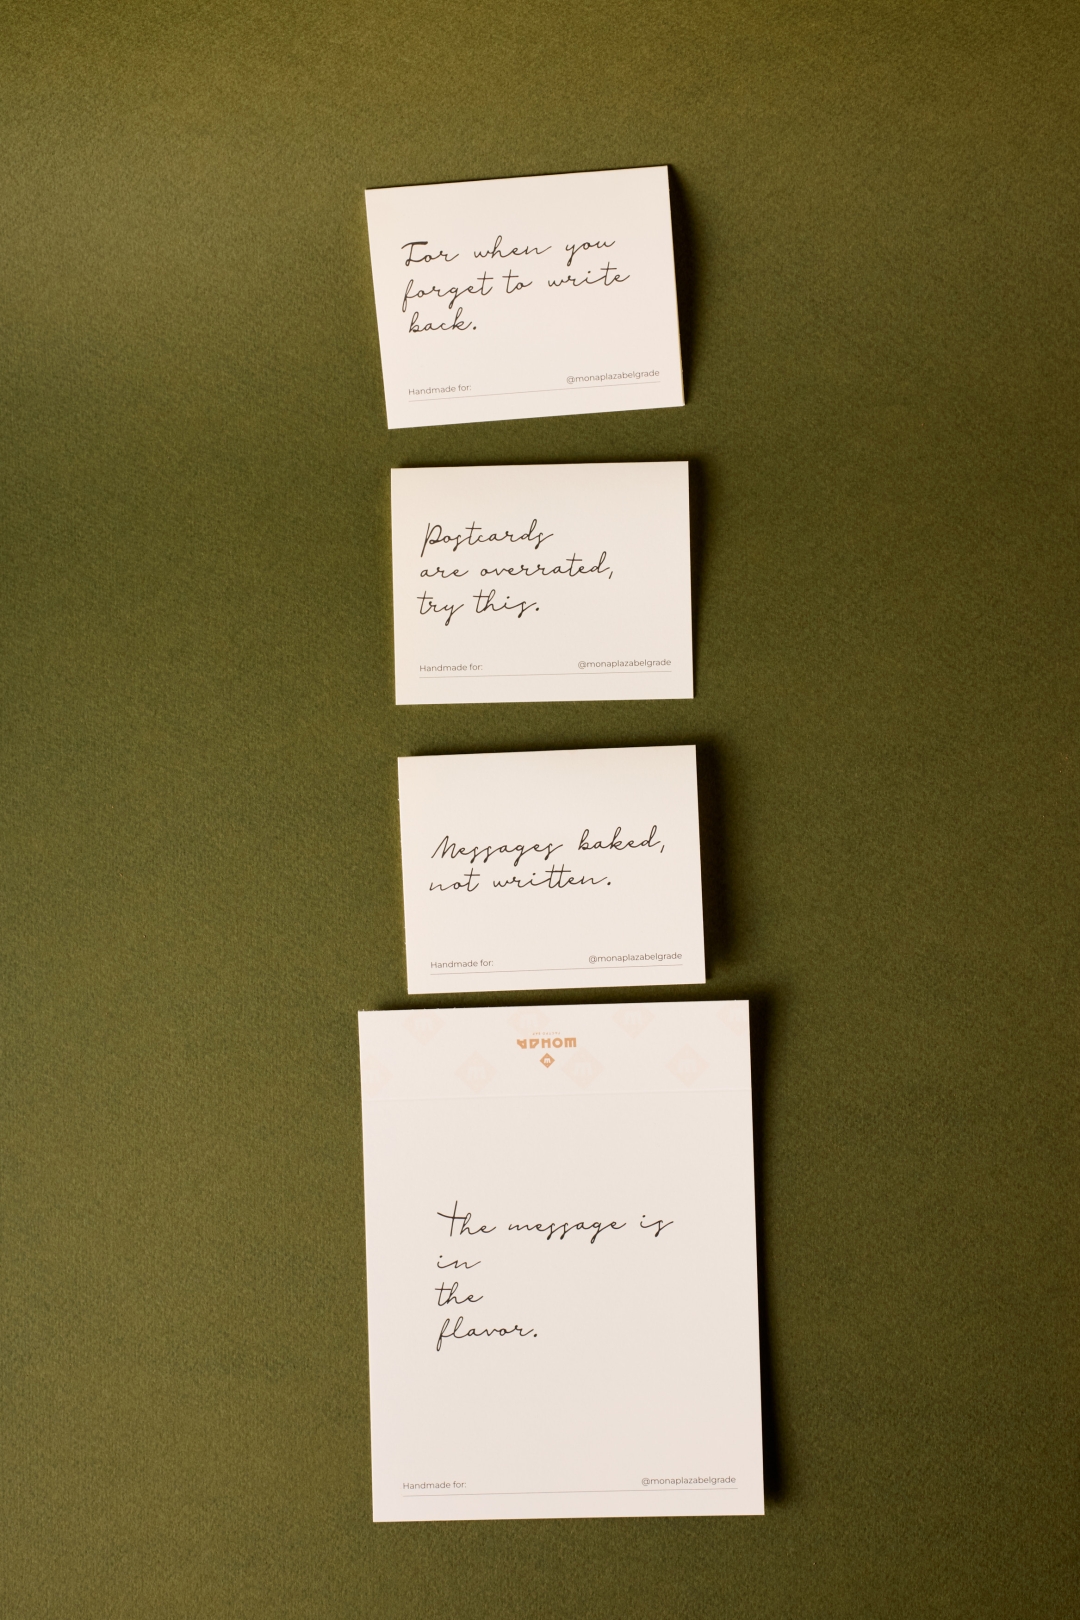 For when you
forget to write
back.
Handmade for: @monaplazabelgrade
Postcards
are overrated,
try this.
Handmade for: @monaplazabelgrade
Messages baked,
not written.
Handmade for: @monaplazabelgrade
The message is
in
the
flavor.
Handmade for: @monaplazabelgrade